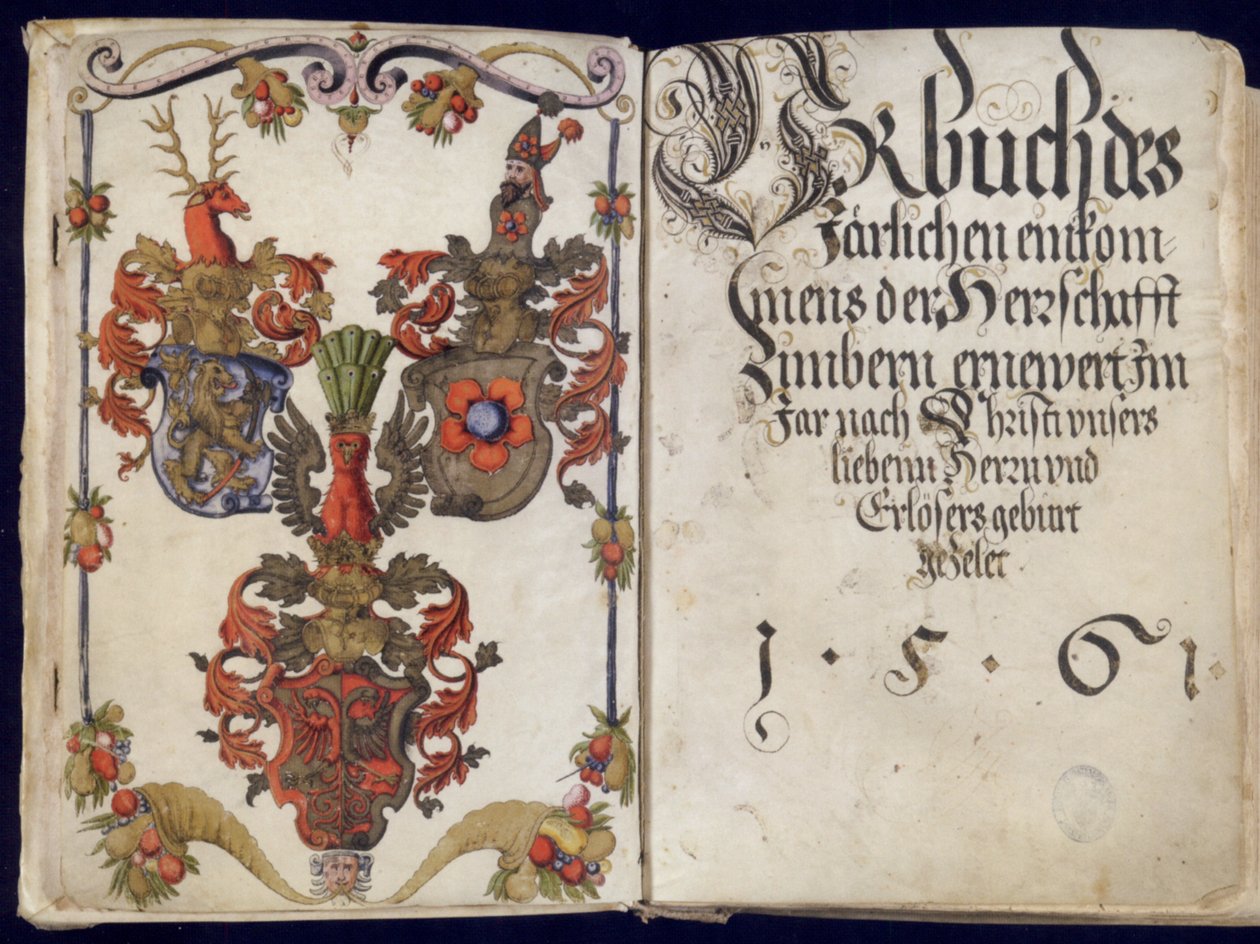 URbuch des
Järlichen einkom-
mens der Herrschafft
Zimbern ernewert Im
Jar nach Christi vnsers
liebenn Herrn vnd
Erlösers geburt
gezelet
1·5·61·